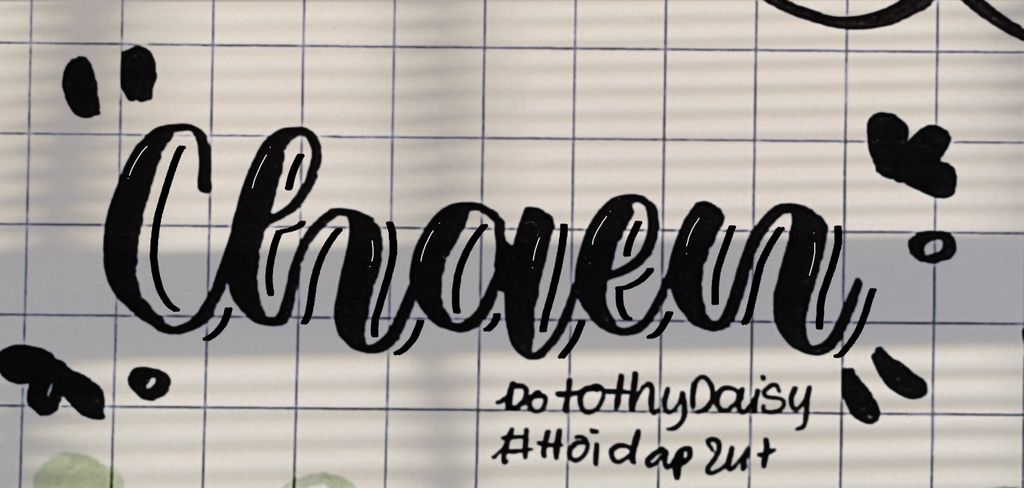 Chaen
DotothyDaisy
#Hoidap24t